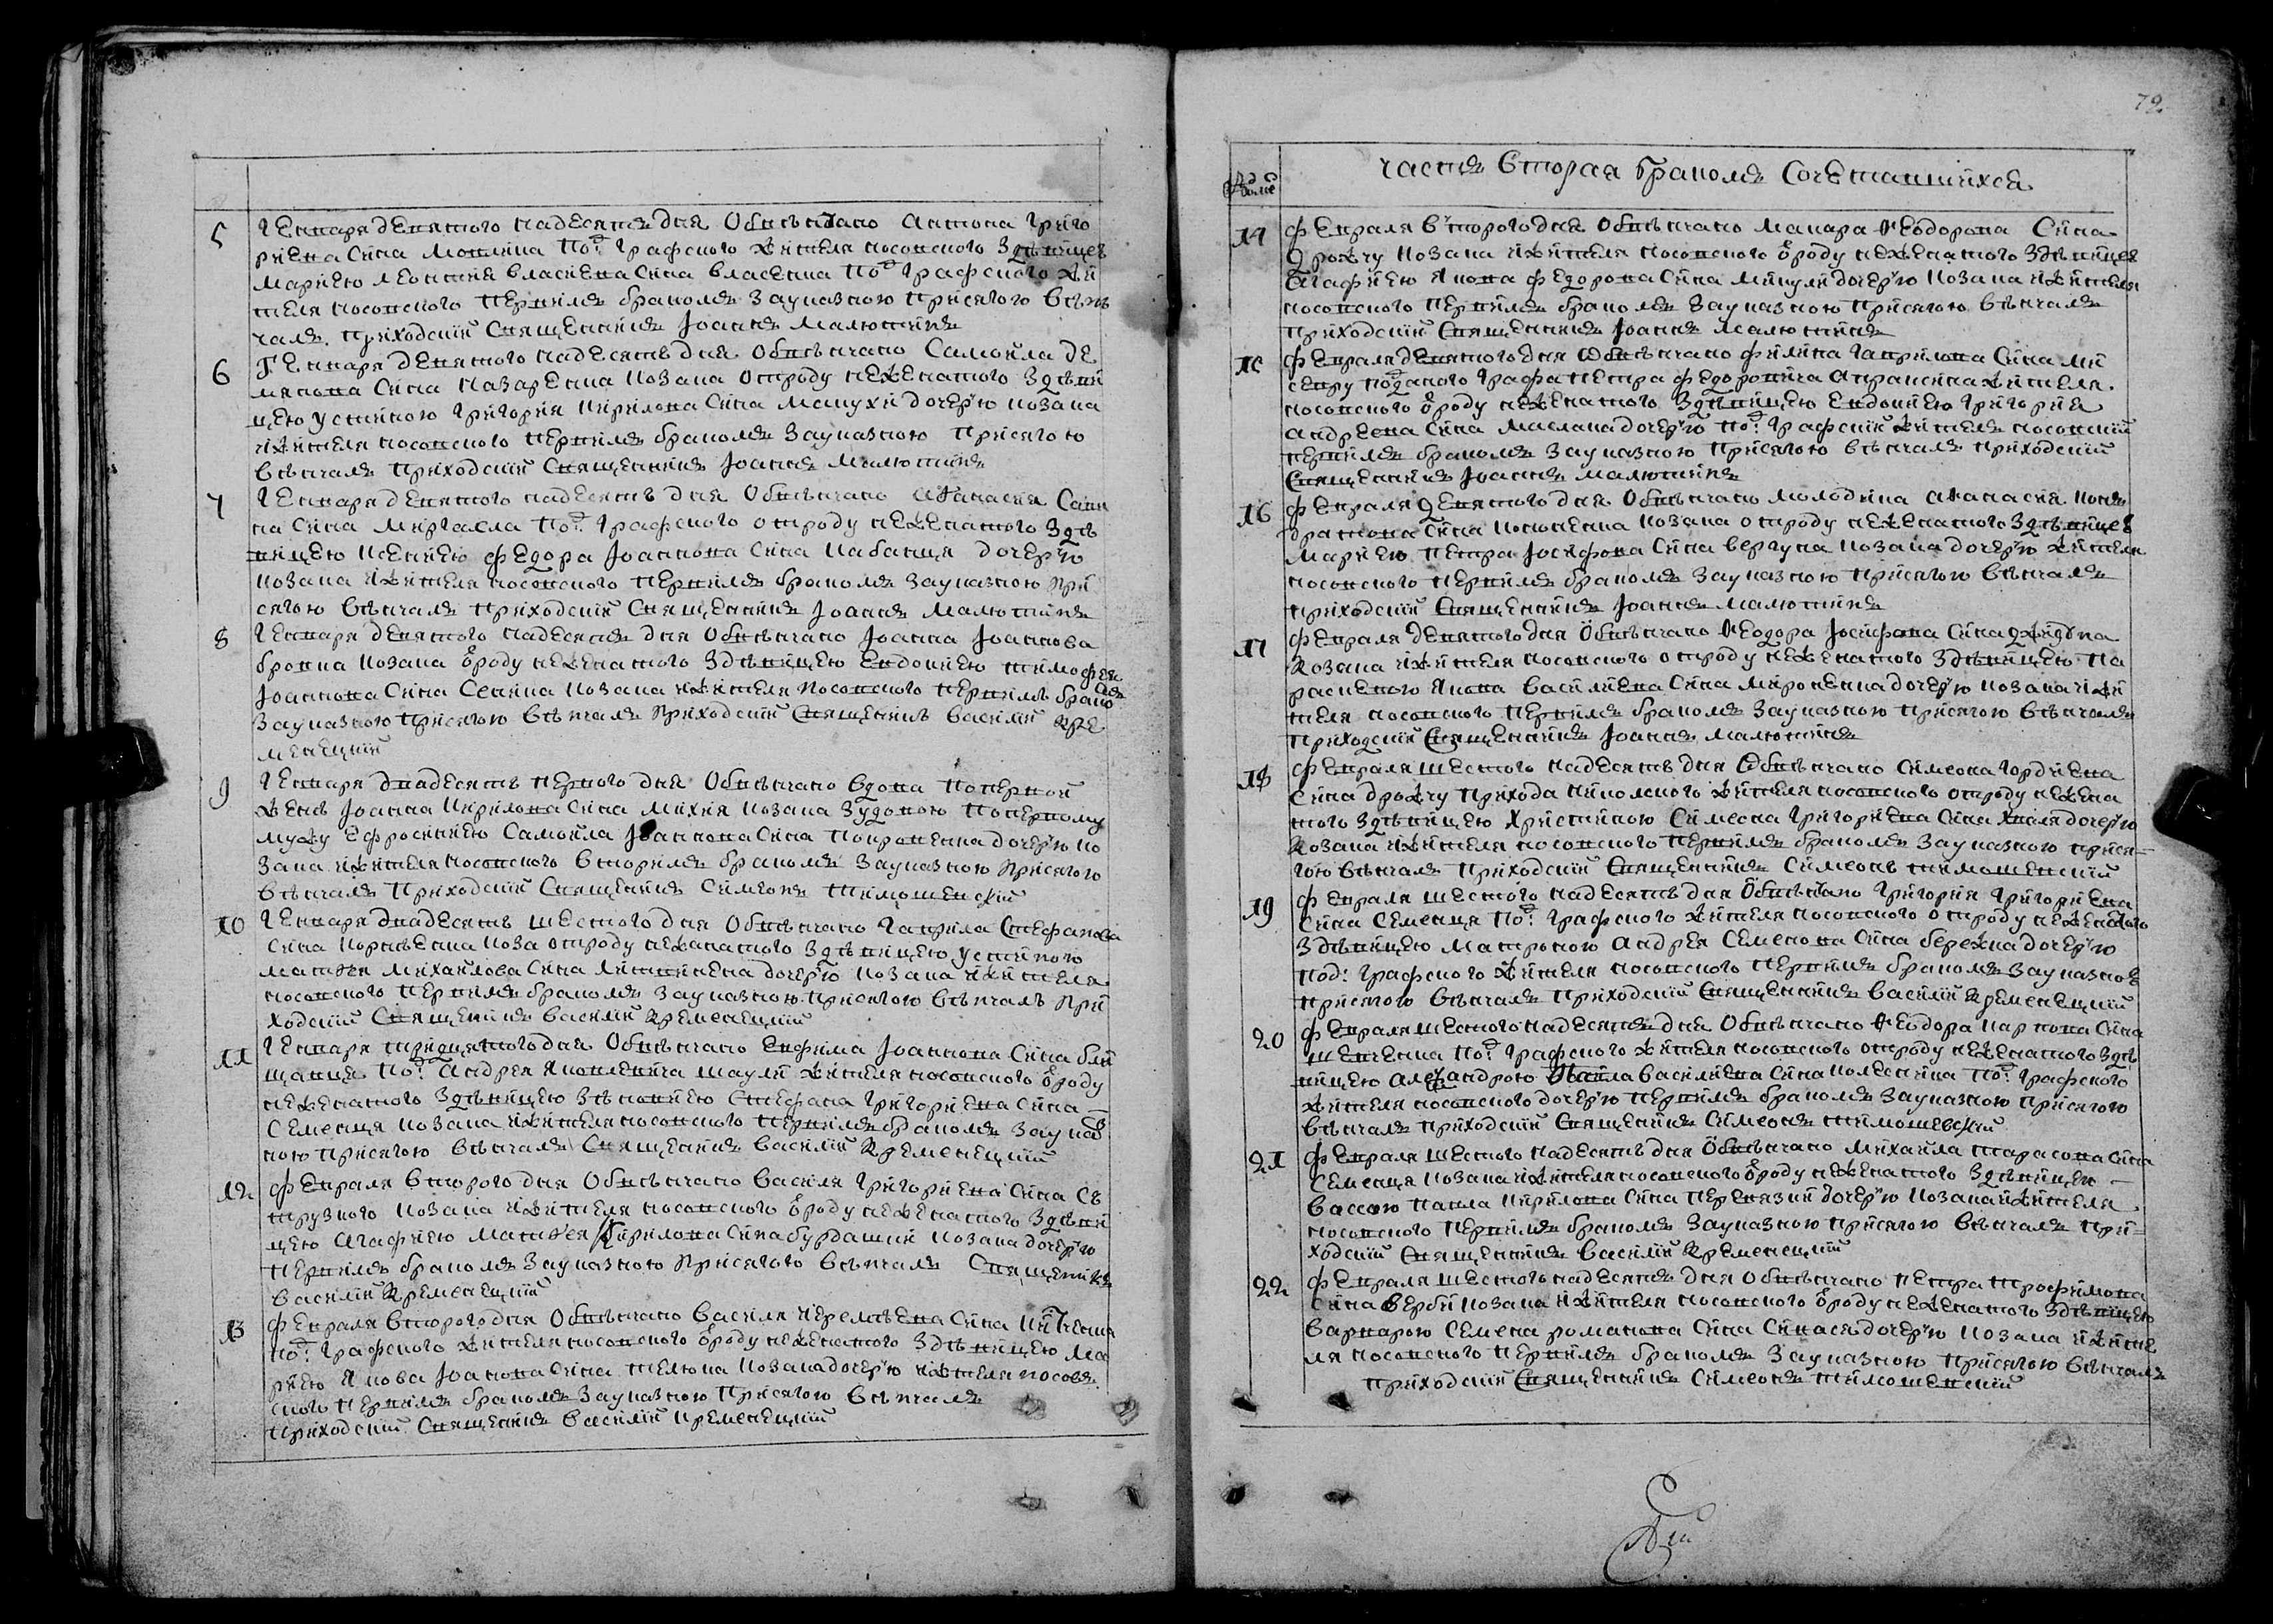 5
Генваря девятого надесять дня Обвѣнчано Антона Григо
риева сина Мовлина Под: Графского жителя носовского Здѣвицеѣ
Мариею Леонтия Власиева сина Власенка Под: Графского жи
теля носовского первимъ бракомъ Зауказною присягою вѣнъ
чалъ приходский Священникъ Иоаннъ Малютинъ
6
Генваря девятого надесять дня Обвѣнчано Самойла Де
мянова сина Назаренка козака отроду неженатого Здѣви
цею Устиною Григория Кирилова сина Мацухи дочерю козака
и жителя носовского первимъ бракомъ Зауказною присягою
вѣнчалъ приходский Священникъ Иоаннъ Малютинъ
7
Генваря девятого надесять дня Обвѣнчано Аѳанасия Сави
на сина Миргасла Под: Графского отроду неженатого Здѣ
вицею Ксениею Федора Иоаннова сина Кабанця дочерю
козака и жителя носовского первимъ бракомъ Зауказною при
сягою вѣнчалъ приходский Священникъ Иоаннъ Малютинъ
8
Генваря девятого надесять дня Обвѣнчано Иоанна Иоаннова
бровка козака отроду неженатого Здѣвицею Евдокиею Тимофея
Иоаннова сина Сенина козака и жителя носовского первимъ бракомъ
Зауказною присягою вѣнчалъ приходский Священникъ Василий Кре
менецкий
9
Генваря двадесять первого дня Обвѣнчано вдова По первой
женѣ Иоанна Кирилова сина Михия козака Зудовою По первому
мужу Ефросиниею Самойла Иоаннова сина Покровенка дочерю ко
зака и жителя носовского вторимъ бракомъ Зауказною присягою
вѣнчалъ приходский Священникъ Симеонъ Тимошевский
10
Генваря двадесять шестого дня Обвѣнчано Гаврила Стефанова
сина Корнѣенка коза отроду нежанатого Здѣвицею Устиною
Матѳея Михайлова сина Литвинена дочерю козака и жителя
носовского первимъ бракомъ Зауказною присягою вѣнчалъ при
ходский Священникъ Василий Кременецкий
11
Генваря тридцятого дня Обвѣнчано Евфима Иоаннова сина бли
щанця Под: Андрея Яковлевича шаули жителя носовского отроду
неженатого Здѣвицею Зѣновиею Стефана Григориева сина
Семенця козака и жителя носовского первимъ бракомъ Зауказ
ною присягою вѣнчалъ Священникъ Василий Кременецкий
12
Февраля второго дня Обвѣнчано Василя Григориева сина Съ
трузного козака и жителя носовского отроду неженатого Здѣви
цею Агафиею Матѳея Кирилова сина бурдашки козака дочерю
первимъ бракомъ Зауказною присягою вѣнчалъ Священникъ
Василий Кременецкий
13
Февраля второго дня Обвѣнчано Василя Яремѣева сина
Под: Графского жителя носовского отроду неженатого Здѣвицею Ма
риею Якова Иоаннова сина Телюка козака дочерю и жителя носовъ
ского первимъ бракомъ Зауказною присягою вѣнчалъ
приходский Священникъ Василий Кременецкий
72
Часть вторая бракомъ Сочетавшихся
14
Февраля второго дня Обвѣнчано Макара Ѳеодорова Сина
Дрожчу козака и жителя носовского отроду неженатого Здѣвицеѣ
Агафиею Якова Федорова сина Микули дочерю козака и жителя
носовского первимъ бракомъ Зауказною присягою вѣнчалъ
приходский Священникъ Иоаннъ Малютинъ
15
Февраля девятого дня Обвѣнчано Филипа Гаврилова сина Ми
сюру подданого Графа Петра Федоровича Апраксина жителя
носовского отроду неженатого Здѣвицею Евдокиею Григория
Андреева сина Маслака дочерю Под: Графский жителъ носовский
первимъ бракомъ Зауказною присягою вѣнчалъ приходский
Священникъ Иоаннъ Малютинъ
16
Февраля девятого дня Обвѣнчано молодика Аѳанасия Конъ
дратова сина козака отроду неженатого Здѣвицеѣ
Мариею Петра Иосифова сина Вергуна козака дочерю жителя
носовского первимъ бракомъ Зауказною присягою вѣнчалъ
приходский Священникъ Иоаннъ Малютинъ
17
Февраля девятого дня Обвѣнчано Ѳеодора Иосифова сина
козака и жителя носовского отроду неженатого Здѣвицею Па
раскевою Якова Василиева сина Мироненка дочерю козака и жи
теля носовского первимъ бракомъ Зауказною присягою вѣнчалъ
приходский Священникъ Иоаннъ Малютинъ
18
Февраля шестого надесять дня Обвѣнчано Симеона Гордиева
сина дрожчу прихода жителя носовского отроду нежена
того Здѣвицею Христиною Симеона Григориева сина Хваля дочерю
козака и жителя носовского первимъ бракомъ Зауказною прися
гою вѣнчалъ приходский Священникъ Симеонъ Тимошевский
19
Февраля шестого надесять дня Обвѣнчано Григория Григориева
сина Семенця Под: Графского жителя носовского отроду неженатого
Здѣвицею Матроною Андрея Семенова сина бережка дочерю
Под: Графского жителя носовского первимъ бракомъ Зауказною
присягою вѣнчалъ приходский Священникъ Василий Кременецкий
20
Февраля шестого надесять дня Обвѣнчано Ѳеодора Карпова сина
Шевченка Под: Графского жителя носовского отроду неженатого Здѣ
вицею Александрою Василиева сина Под: Графского
жителя носовского дочерю первимъ бракомъ Зауказною присягою
вѣнчалъ приходский Священникъ Симеонъ Тимошевский
21
Февраля шестого надесять дня Обвѣнчано Михайла Тарасова сина
Семенця козака и жителя носовского отроду неженатого Здѣвицею
Вассою Павла Кирилова сина Перевязки дочерю козака и жителя
носовского первимъ бракомъ Зауказною присягою вѣнчалъ при
ходский Священникъ Василий Кременецкий
22
Февраля шестого надесять дня Обвѣнчано Петра Трофимова
сина Верби козака и жителя носовского отроду неженатого Здѣвицею
Варварою Семена Романова сина дочерю козака и жите
ля носовского первимъ бракомъ Зауказною присягою вѣнчалъ
приходский Священникъ Симеонъ Тимошевский